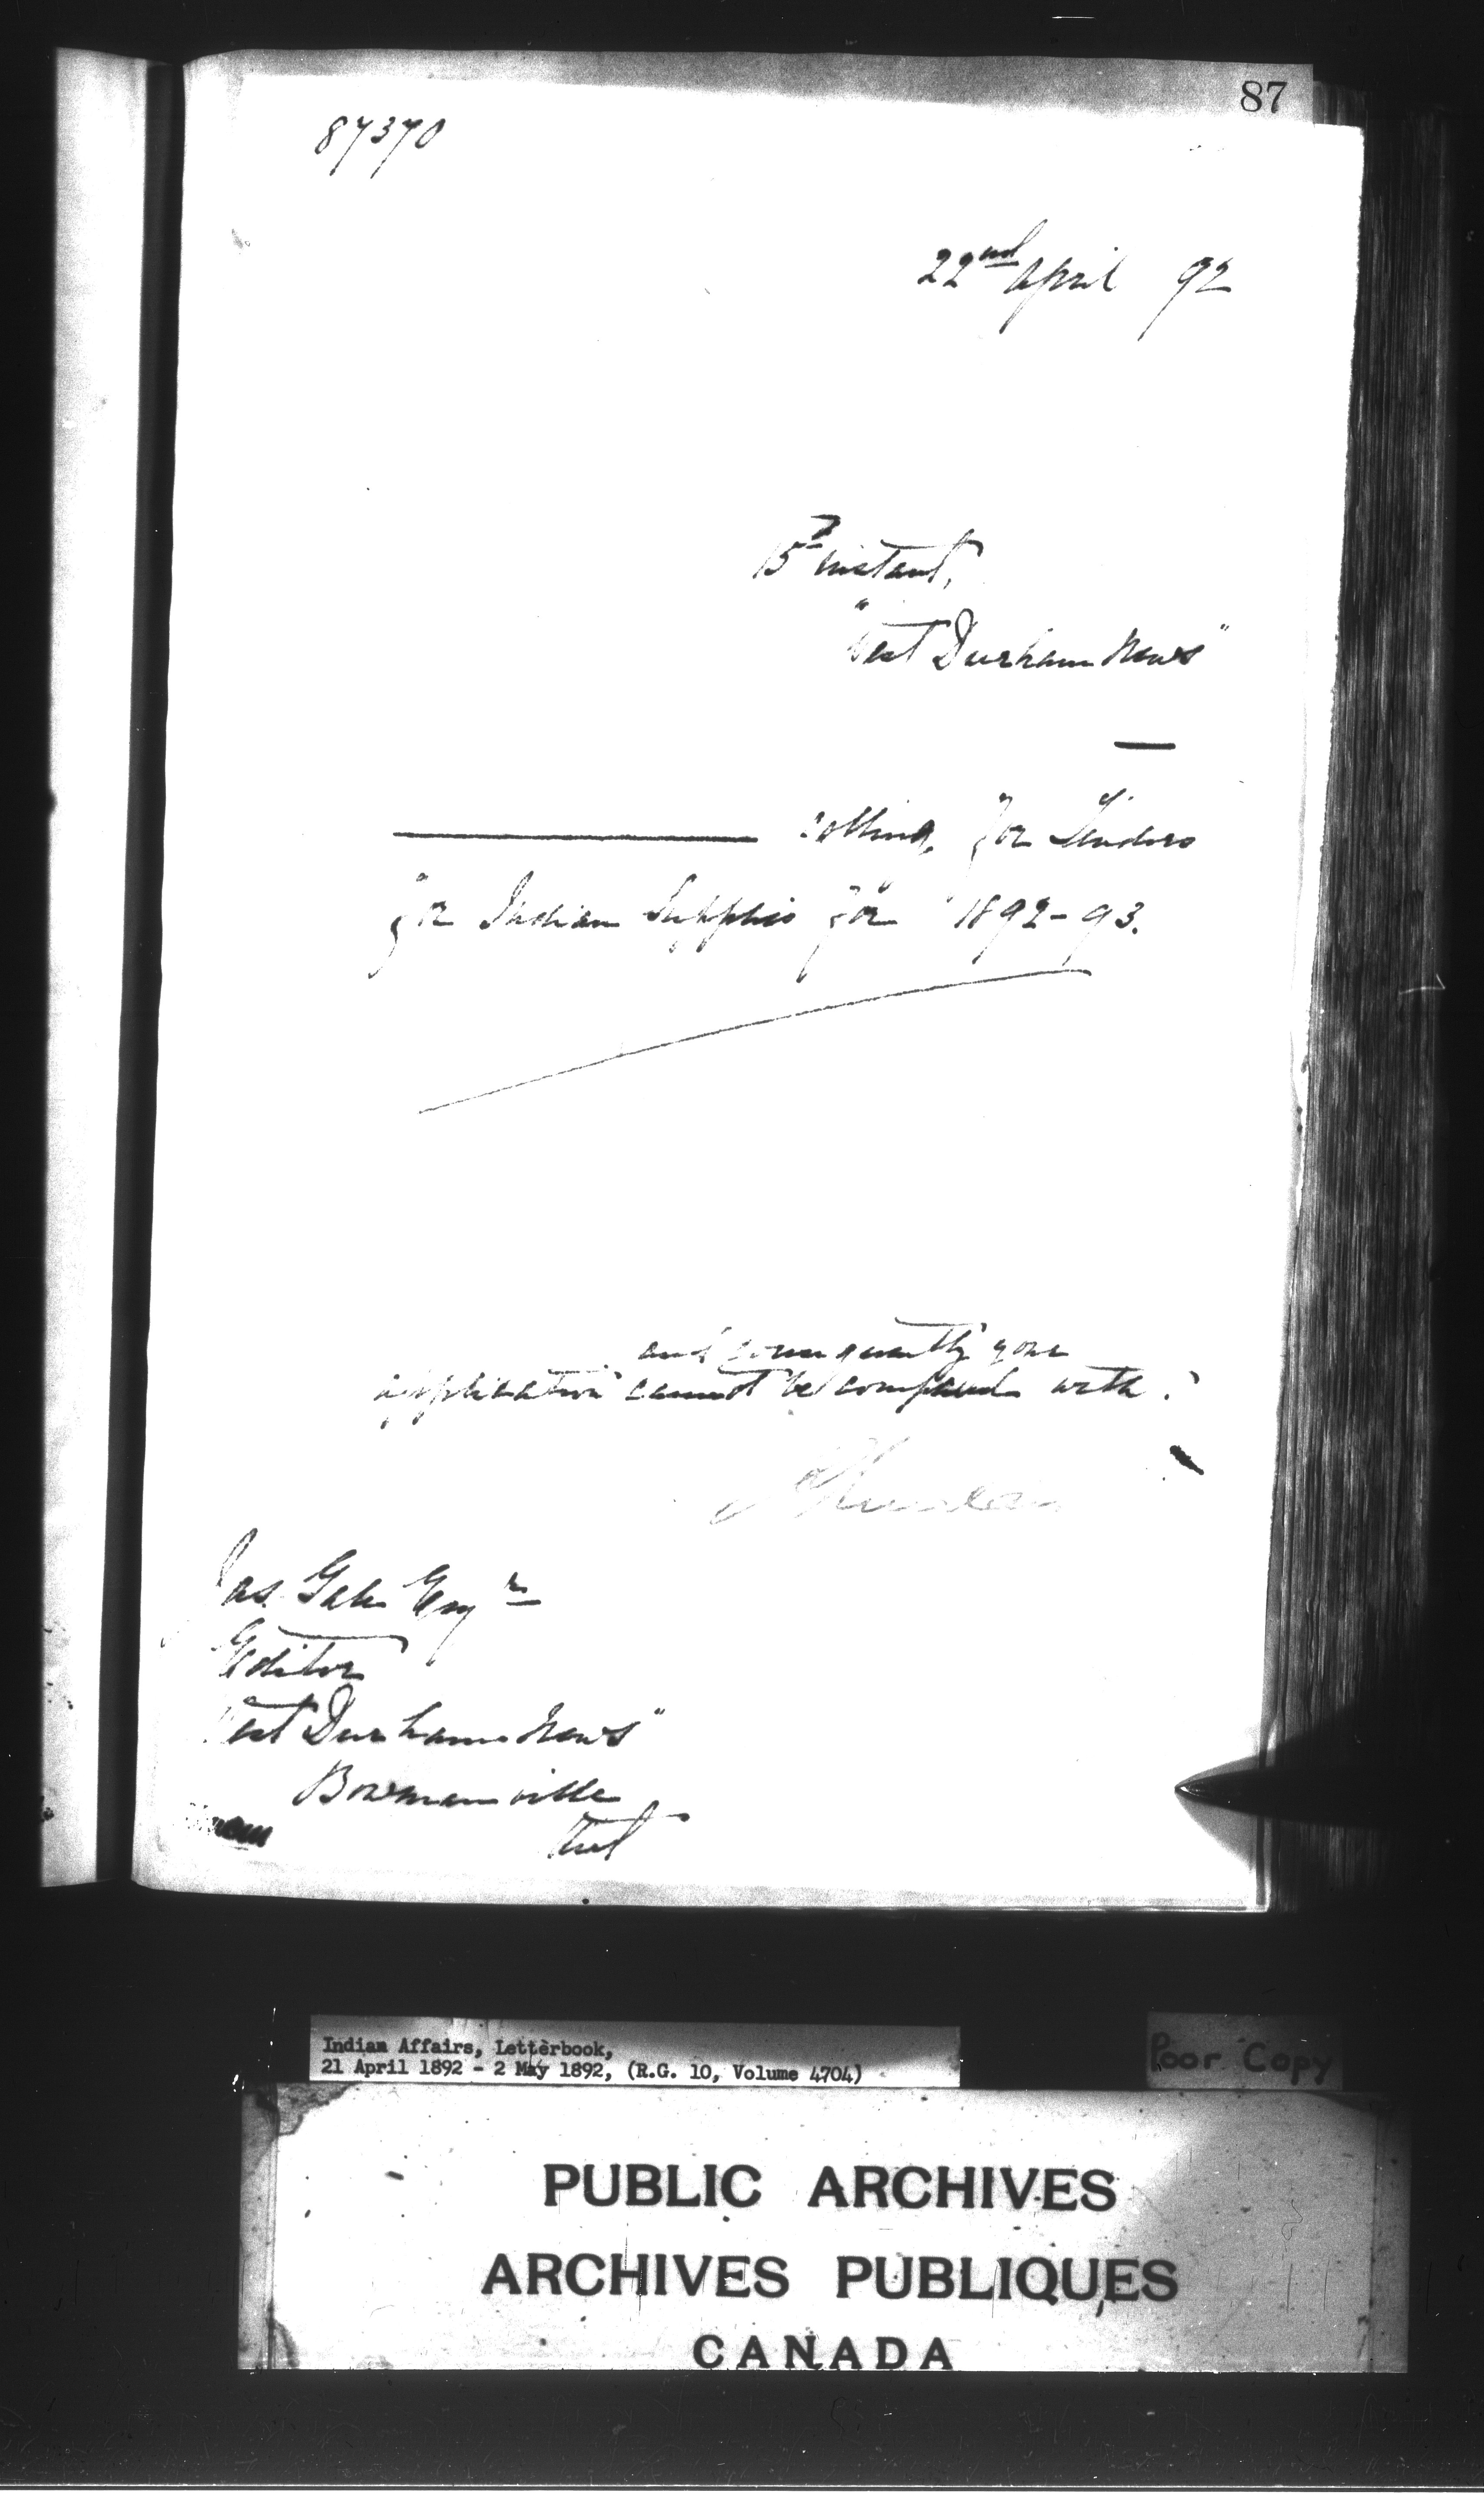 87
87370
22nd April 92
15th instant,
"West Durham News"
calling for Tenders
for Indian Supplies for 1892-93.
and consequently your
application cannot be complied with.
Jas. Esqr
Editor
West Durham News"
Bowmanville
Ont
Indian Affairs, Letterbook,
21 April 1892 - 2 May 1892, (R.G. 10, Volume 4704)
Poor Copy
PUBLIC ARCHIVES
ARCHIVES PUBLIQUES
CANADA